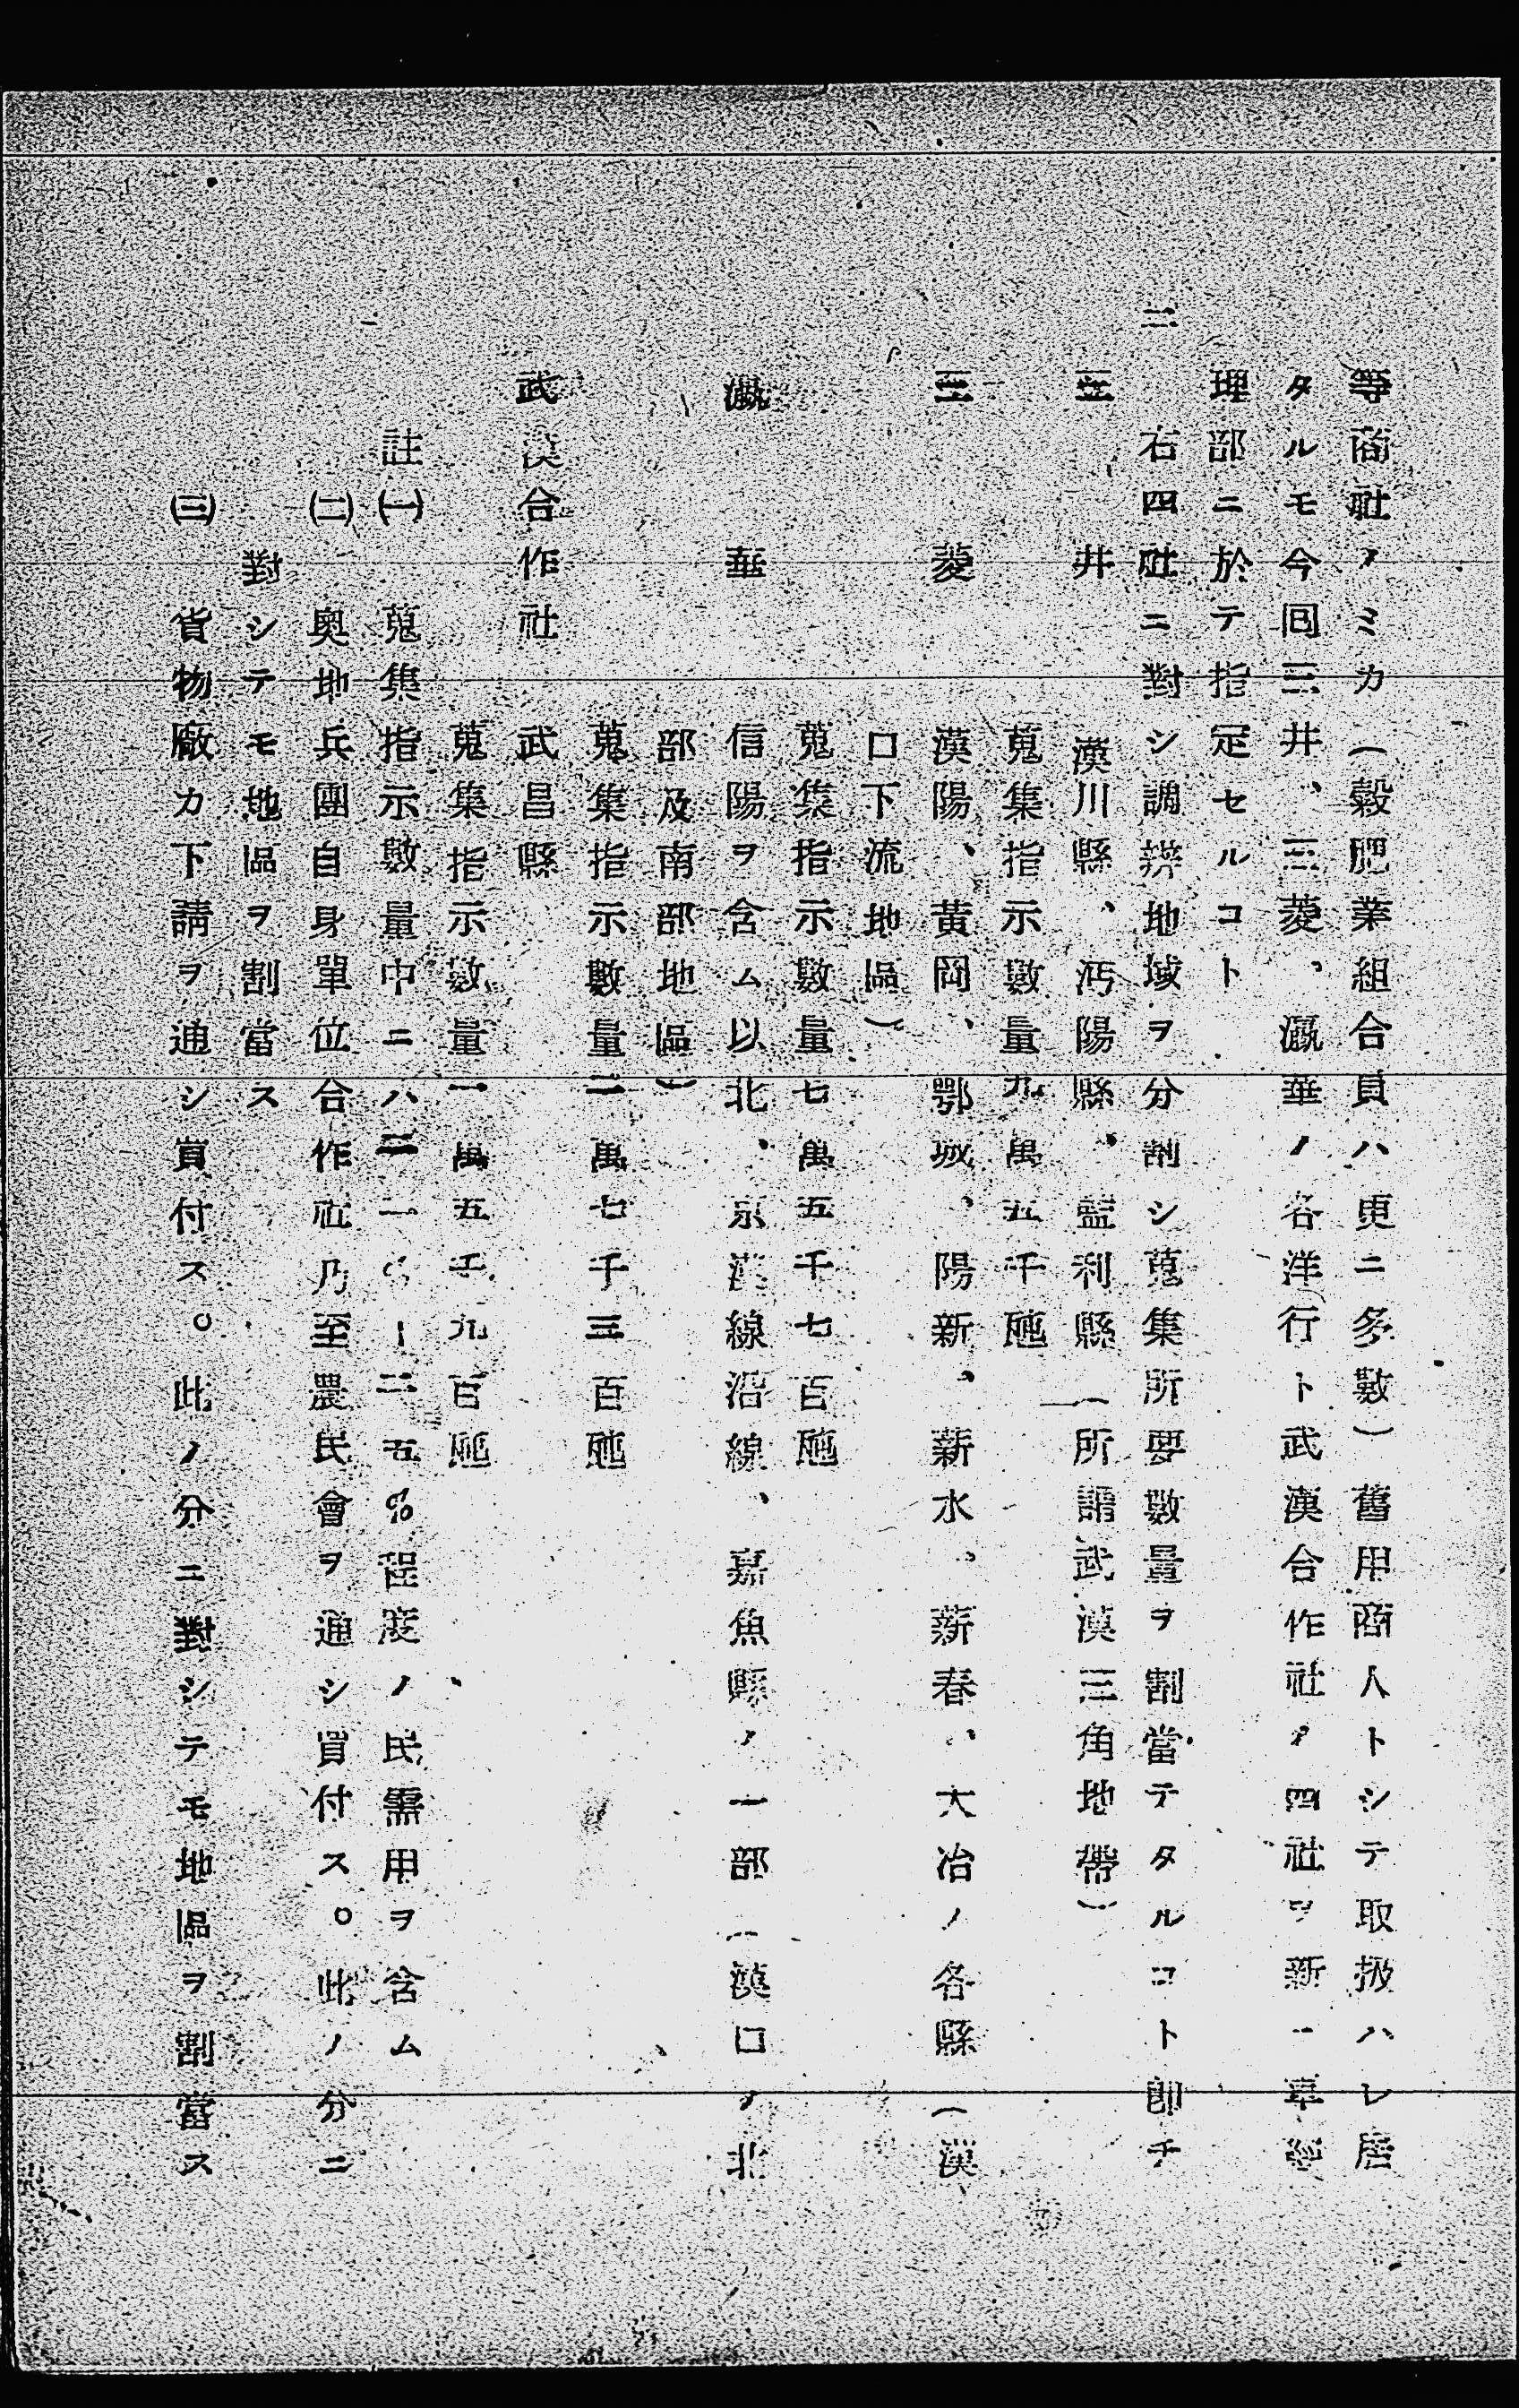 等商社ノミカ(穀肥業組合員ハ更ニ多数)舊用商人トシテ取扱ハレ居
タルモ今回三井、三菱、瀛華ノ各洋行ト武漢合作社ノ四社ヲ新ニ軍經
理部ニ於テ指定セルコト
二 右四社ニ對シ調辨地域ヲ分割シ蒐集所要數量ヲ割當テタルコト卽チ
三 井 漢川縣、沔陽縣、監利縣(所謂武漢三角地帶)
蒐集指示數量九萬五千瓲
三 菱 漢陽、黃岡、鄂城、陽新、蘄水、蘄春、大冶ノ各縣(漢
口下流地區)
蒐集指示數量七萬五千七百瓲
瀛 華 信陽ヲ含ム以北、京漢線沿線、嘉魚縣ノ一部(漢口ノ北
部及南部地區)
蒐集指示數量二萬七千三百瓲
武漢合作社 武昌縣
蒐集指示數量一萬五千九百瓲
註 (一) 蒐集指示數量中ニハ 二五%程度ノ民需用ヲ含ム
(二) 奧地兵團自身單位合作社乃至農民會ヲ通シ買付ス。此ノ分ニ
對シテモ地區ヲ割當ス
(三) 貨物廠カ下請ヲ通シ買付ス。此ノ分ニ對シテモ地區ヲ割當ス